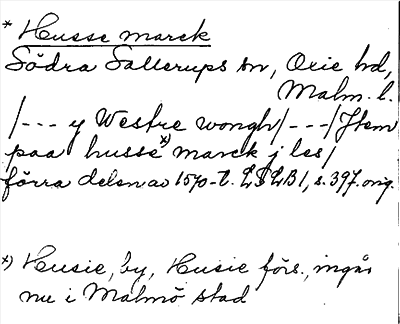 * Husse marck
Södra Sallerups sn, Oxie hd,
Malm. l.
/--- y Westre wongh/---/Item
paa husse x) marck j les/
förra delen av 1570-t. LSLB 1, s. 397. orig.
x) Husie, by, Husie förs., ingår
nu i Malmö stad